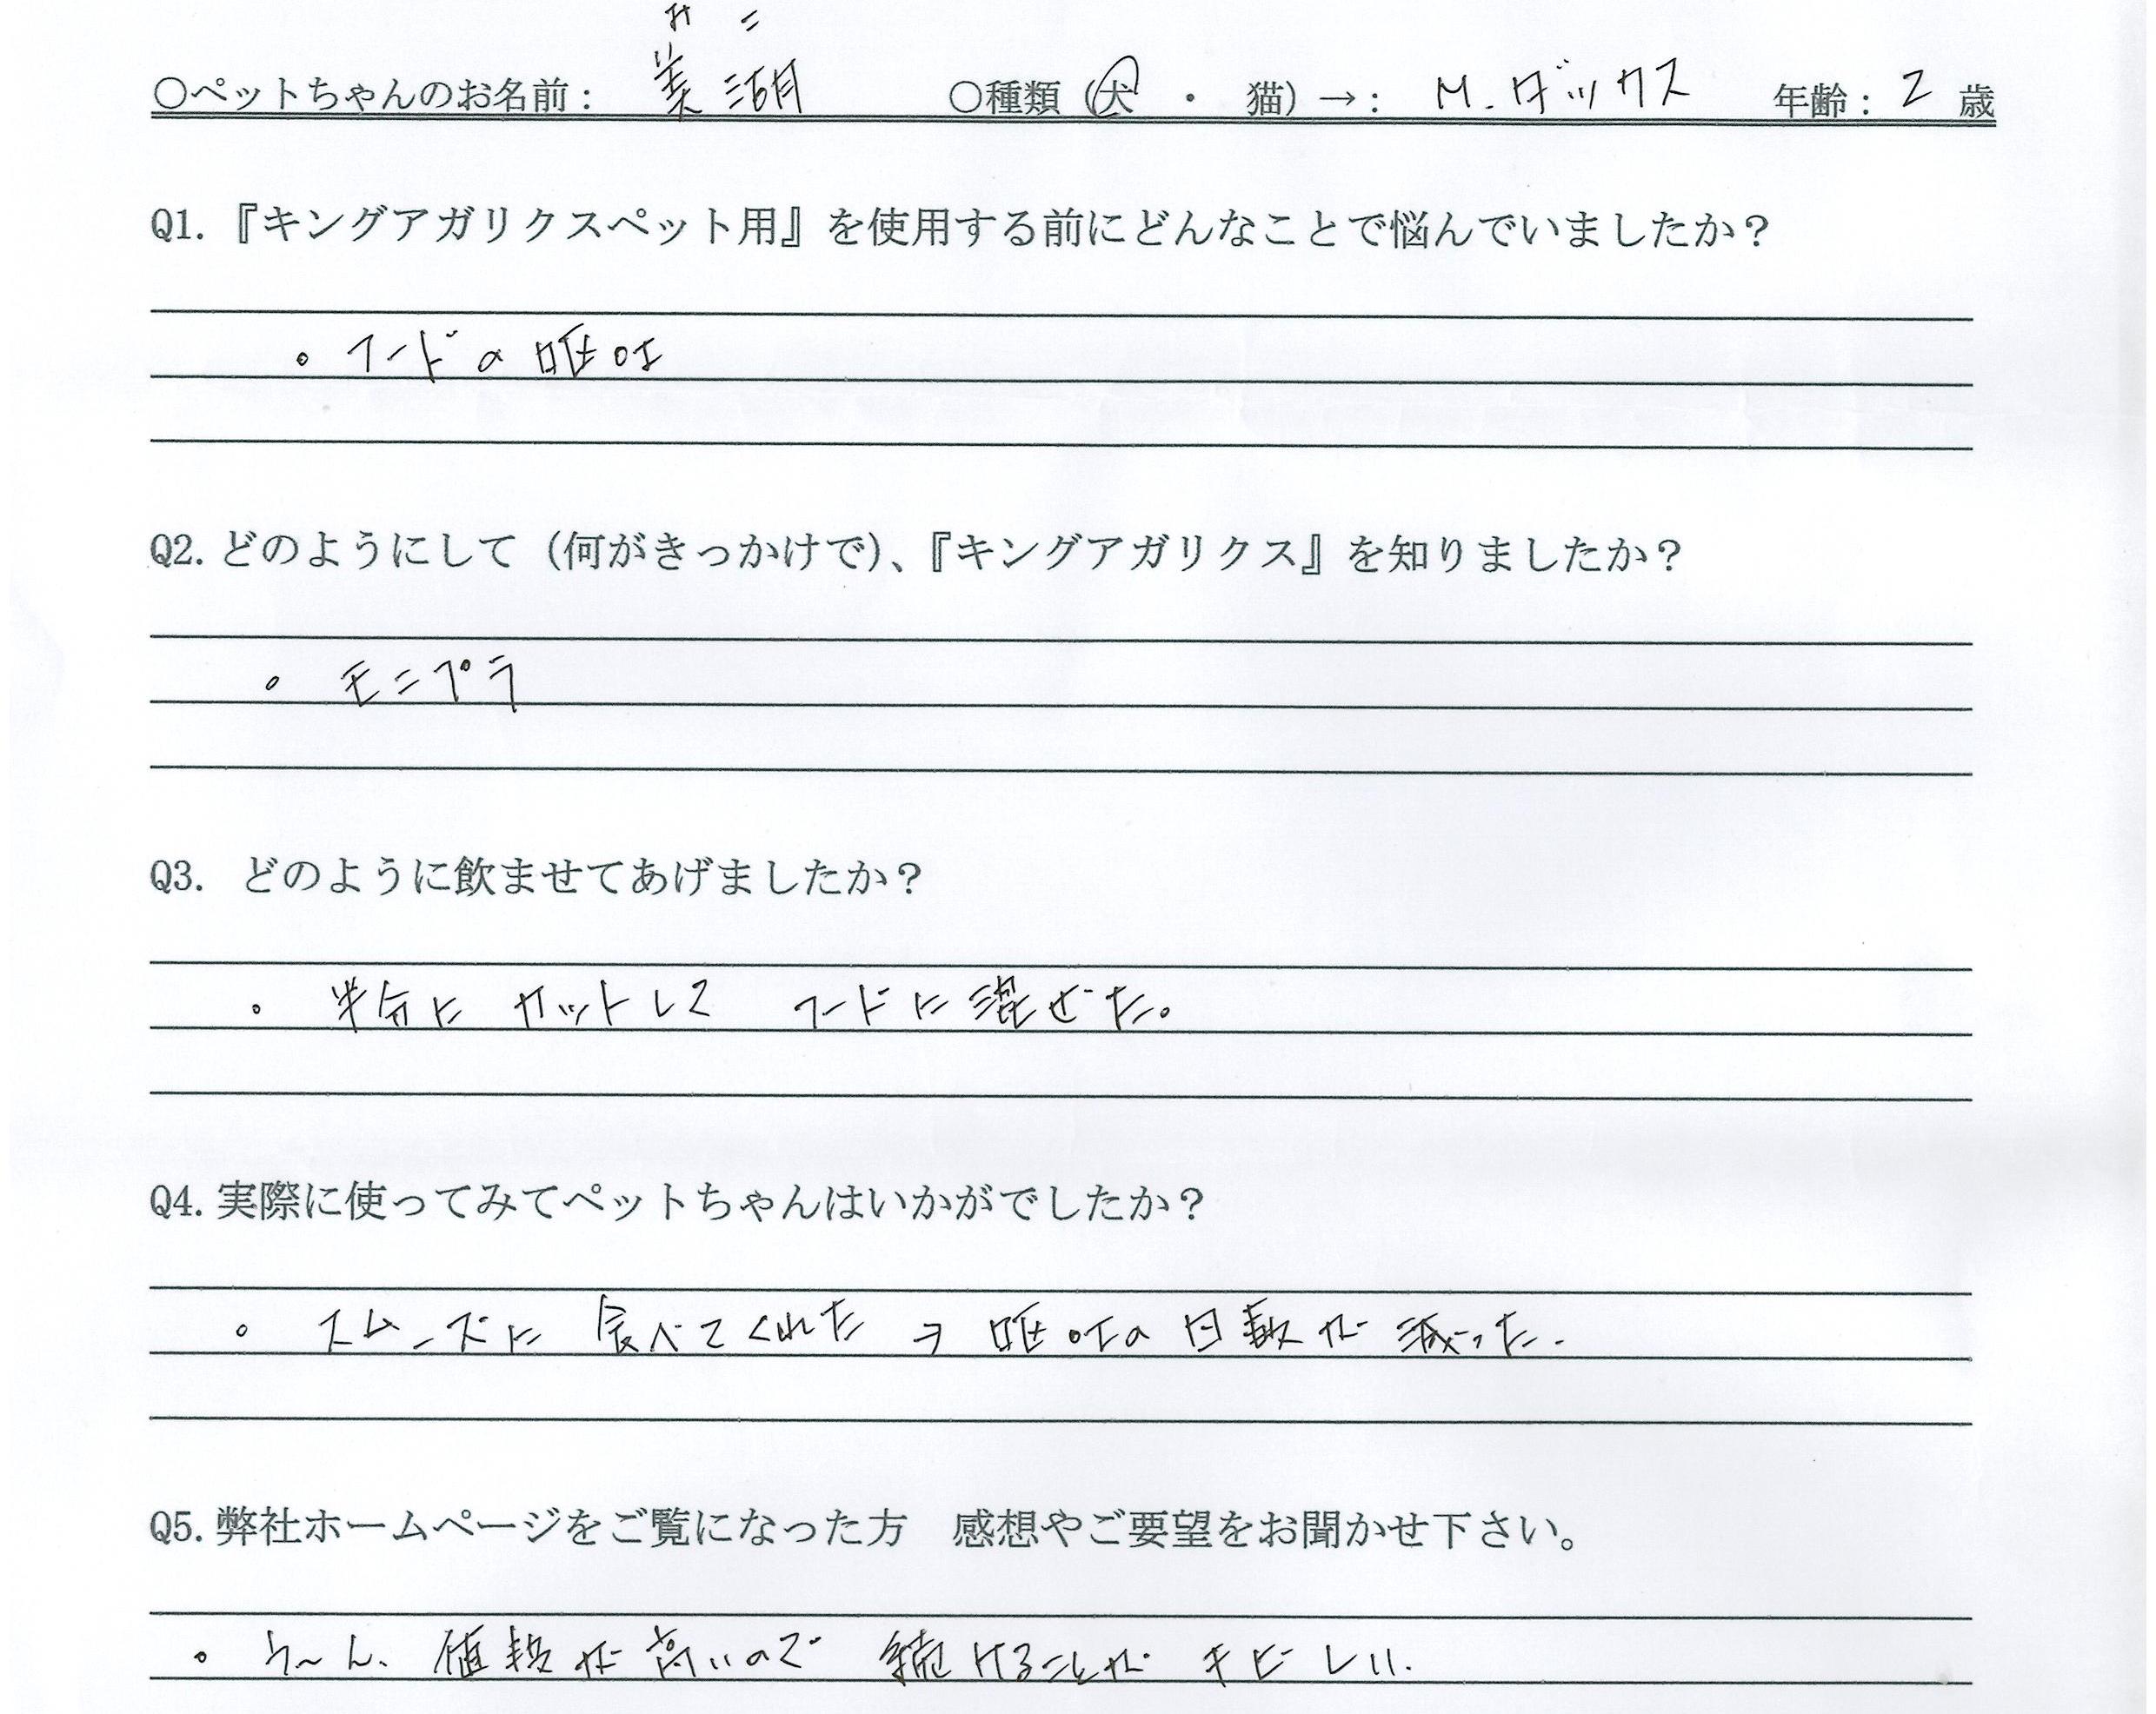 みこ
○ペットちゃんのお名前： 美湖 ○種類（犬 ・ 猫）→： M.ダックス 年齢： 2 歳
Q1.『キングアガリクスペット用』を使用する前にどんなことで悩んでいましたか？
。フードの嘔吐
Q2.どのようにして（何がきっかけで）、『キングアガリクス』を知りましたか？
。モニプラ
Q3. どのように飲ませてあげましたか？
。半分に カットして フードに混ぜた。
Q4.実際に使ってみてペットちゃんはいかがでしたか？
。スムーズに 食べてくれた → 嘔吐の日数が 減った.
Q5.弊社ホームページをご覧になった方　感想やご要望をお聞かせ下さい。
。う〜ん、値段が高いので 続けることが キビしい.